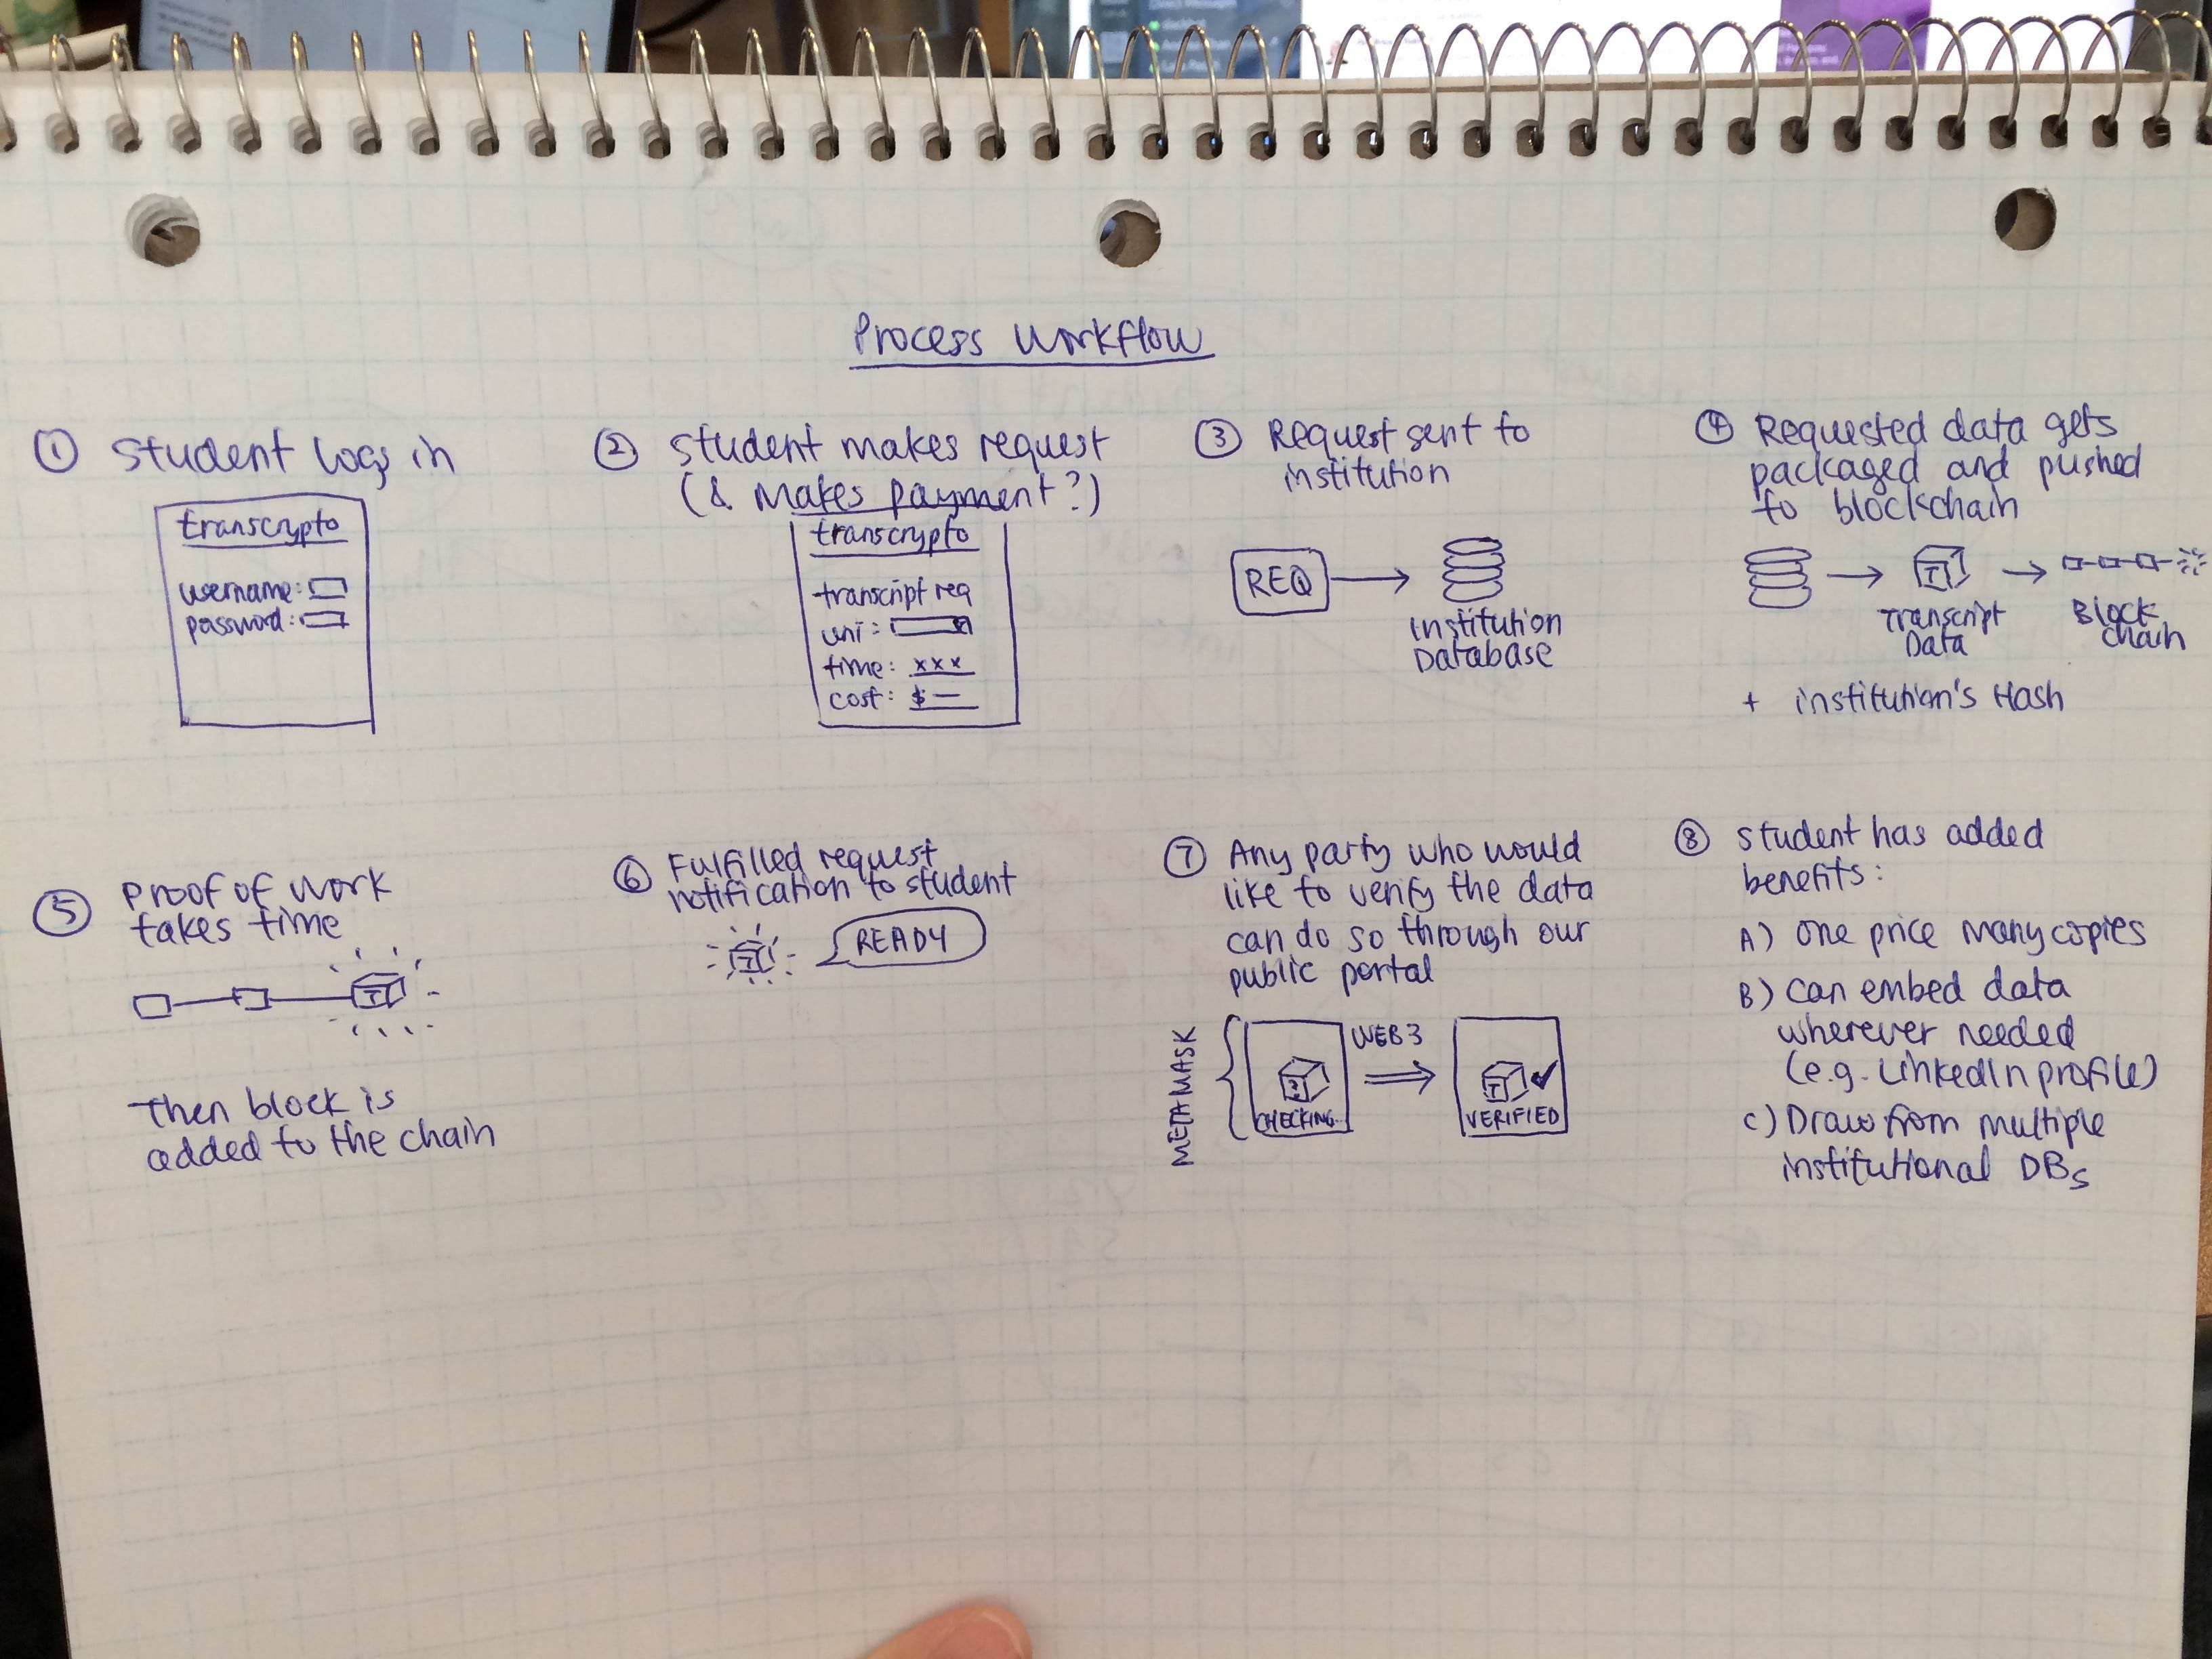 Process Workflow
① Student logs in
transcrypto
username:
password:
② Student makes request
(& Makes payment?)
transcrypto
transcript req
uni:
time: xxx
cost: $ —
③ Request sent to
institution
REQ
Institution
Database
④ Requested data gets
packaged and pushed
to blockchain
T
Transcript
Data
Block
chain
+ institution's Hash
⑤ Proof of work
takes time
T
Then block is
added to the chain
⑥ Fulfilled request
notification to student
T
READY
⑦ Any party who would
like to verify the data
can do so through our
public portal
METAMASK
?
CHECKING..
WEB3
T
VERIFIED
⑧ Student has added
benefits:
A) One price many copies
B) Can embed data
wherever needed
(e.g. LinkedIn profile)
C) Draw from multiple
institutional DBs